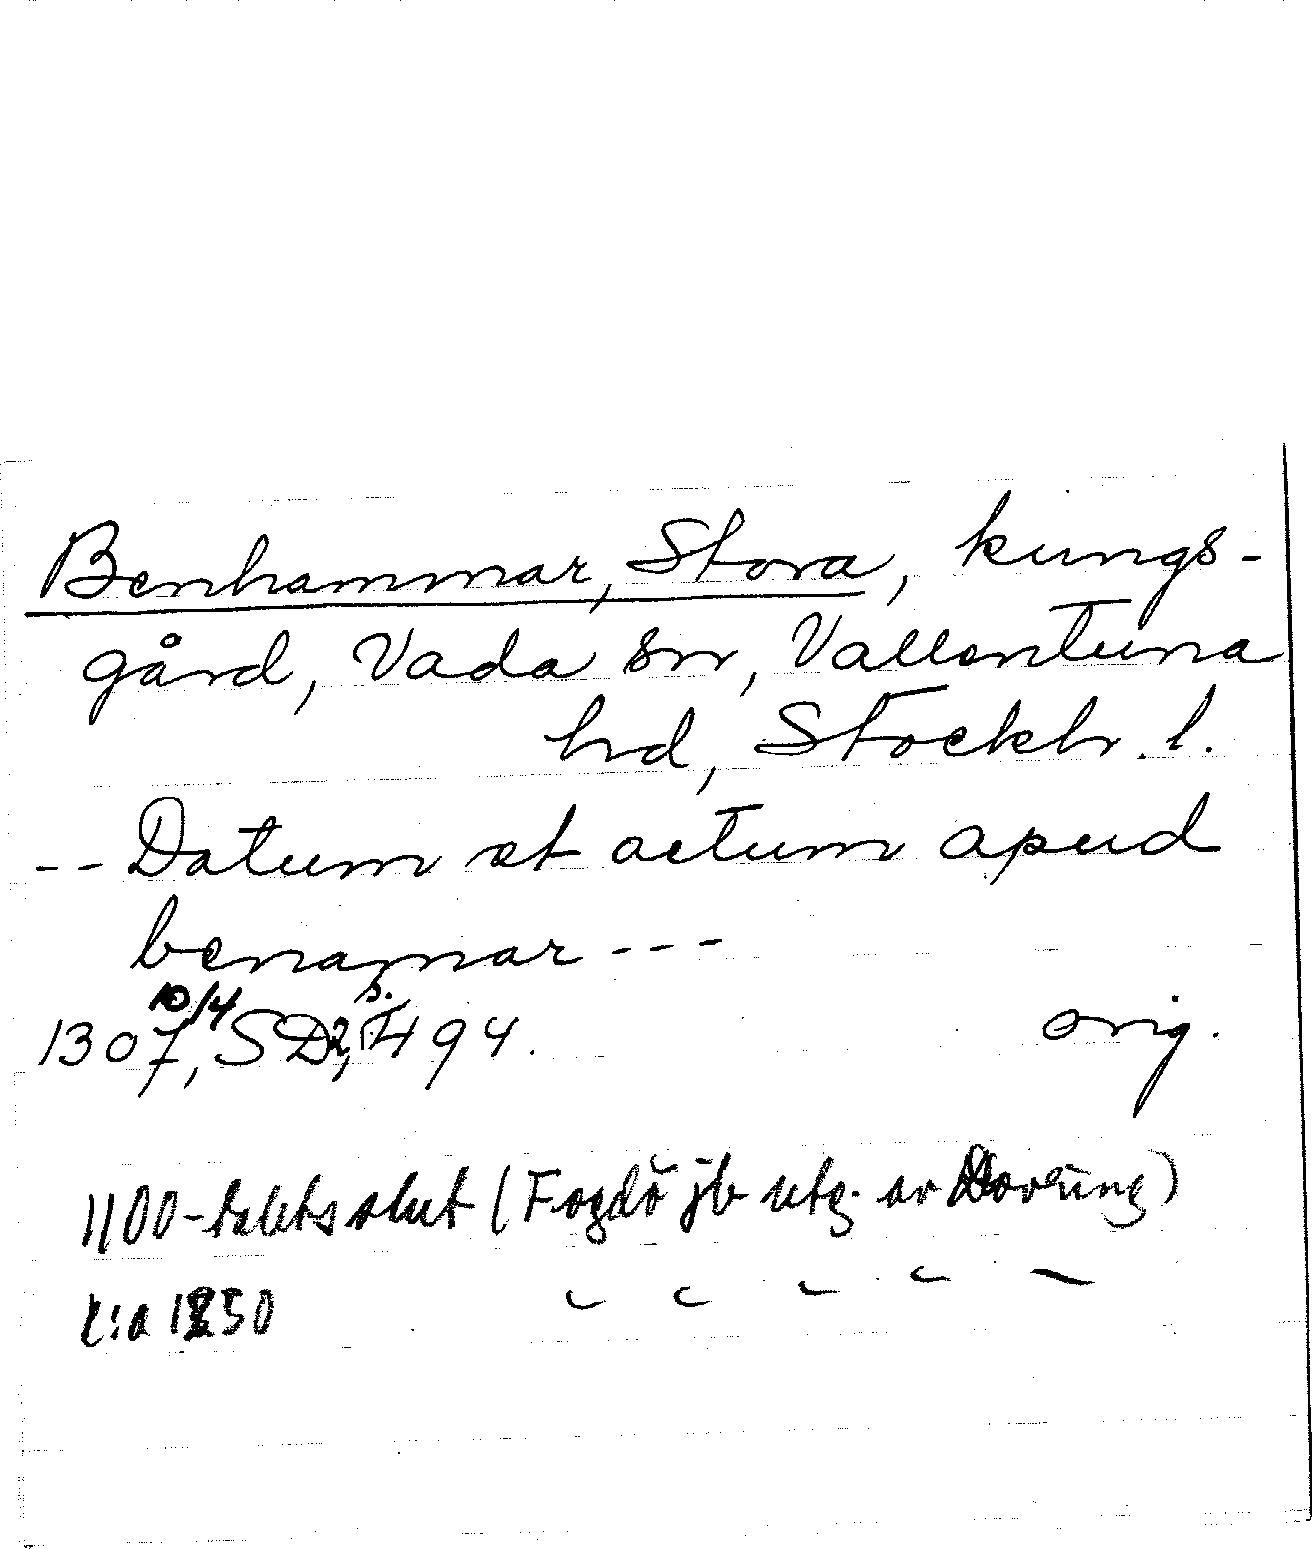 Benhammar, Stora, kungs-
gård, Vada sn, Vallentuna
hd, Stockh. l.
-- Datum et actum apud
benamar ---
1307 10/4, SD2, s. 494.
orig.
1100-talets slut (Fogdö jb utg. av Dovring)
c:a 1250